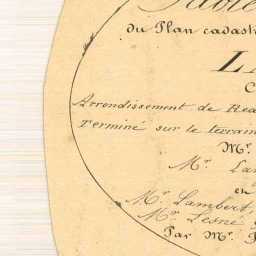 du Plan cadast
Arrondissement de Rea
Terminé sur le terrain
Mr.
Mr.
en
Mr. Lambert,
Mr. Lesné
Par Mr.